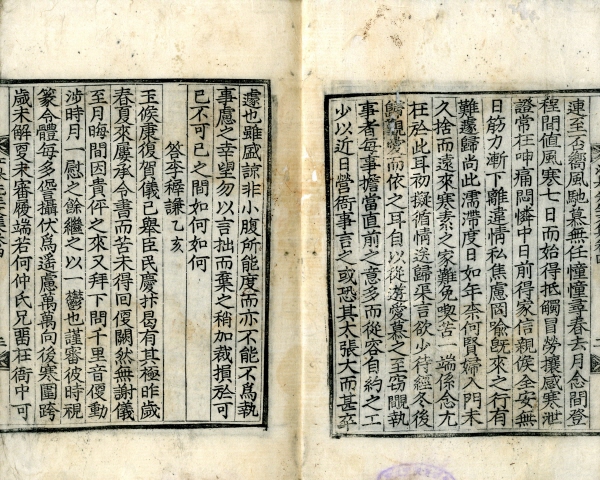 連至否嚮風馳慕無任憧憧尋春去月念間登
程間值風寒七日而始得抵觸冒勞攘感寒泄
證常在呻痛悶憐中日前得家信親候全安無
日筋力漸下離違情私焦慮曷喩旣來之行有
難遽歸尚此濡滯度日如年柰何賢婦入門未
久捨而遠來寒素之家難免喫苦一端係念尤
在於此耳初擬循情送歸渠言欲少待經冬後
歸覲堂而依之耳自以從遊愛慕之至竊覸執
事者每事擔當直前之意多而從容自約之工
少以近日營衙事言之或恐其太張大而甚至
遽也雖盛諒非小腹所能度而亦不能不爲執
事慮之幸望勿以言拙而棄之稍加裁損於可
已不可已之間如何如何
答李稺謙乙亥
玉候康復賀儀已舉臣民慶抃曷有其極昨歲
春夏來屢承令書而苦未得回便闕然無謝儀
至月晦間因貴伻之來又拜下問千里音便動
涉時月一慰之餘繼之以一鬱也謹審彼時視
篆令體每多愆攝伏爲遙慮萬萬向後寒圍跨
歲未解更未審履端若何仲氏兄畱在衙中可